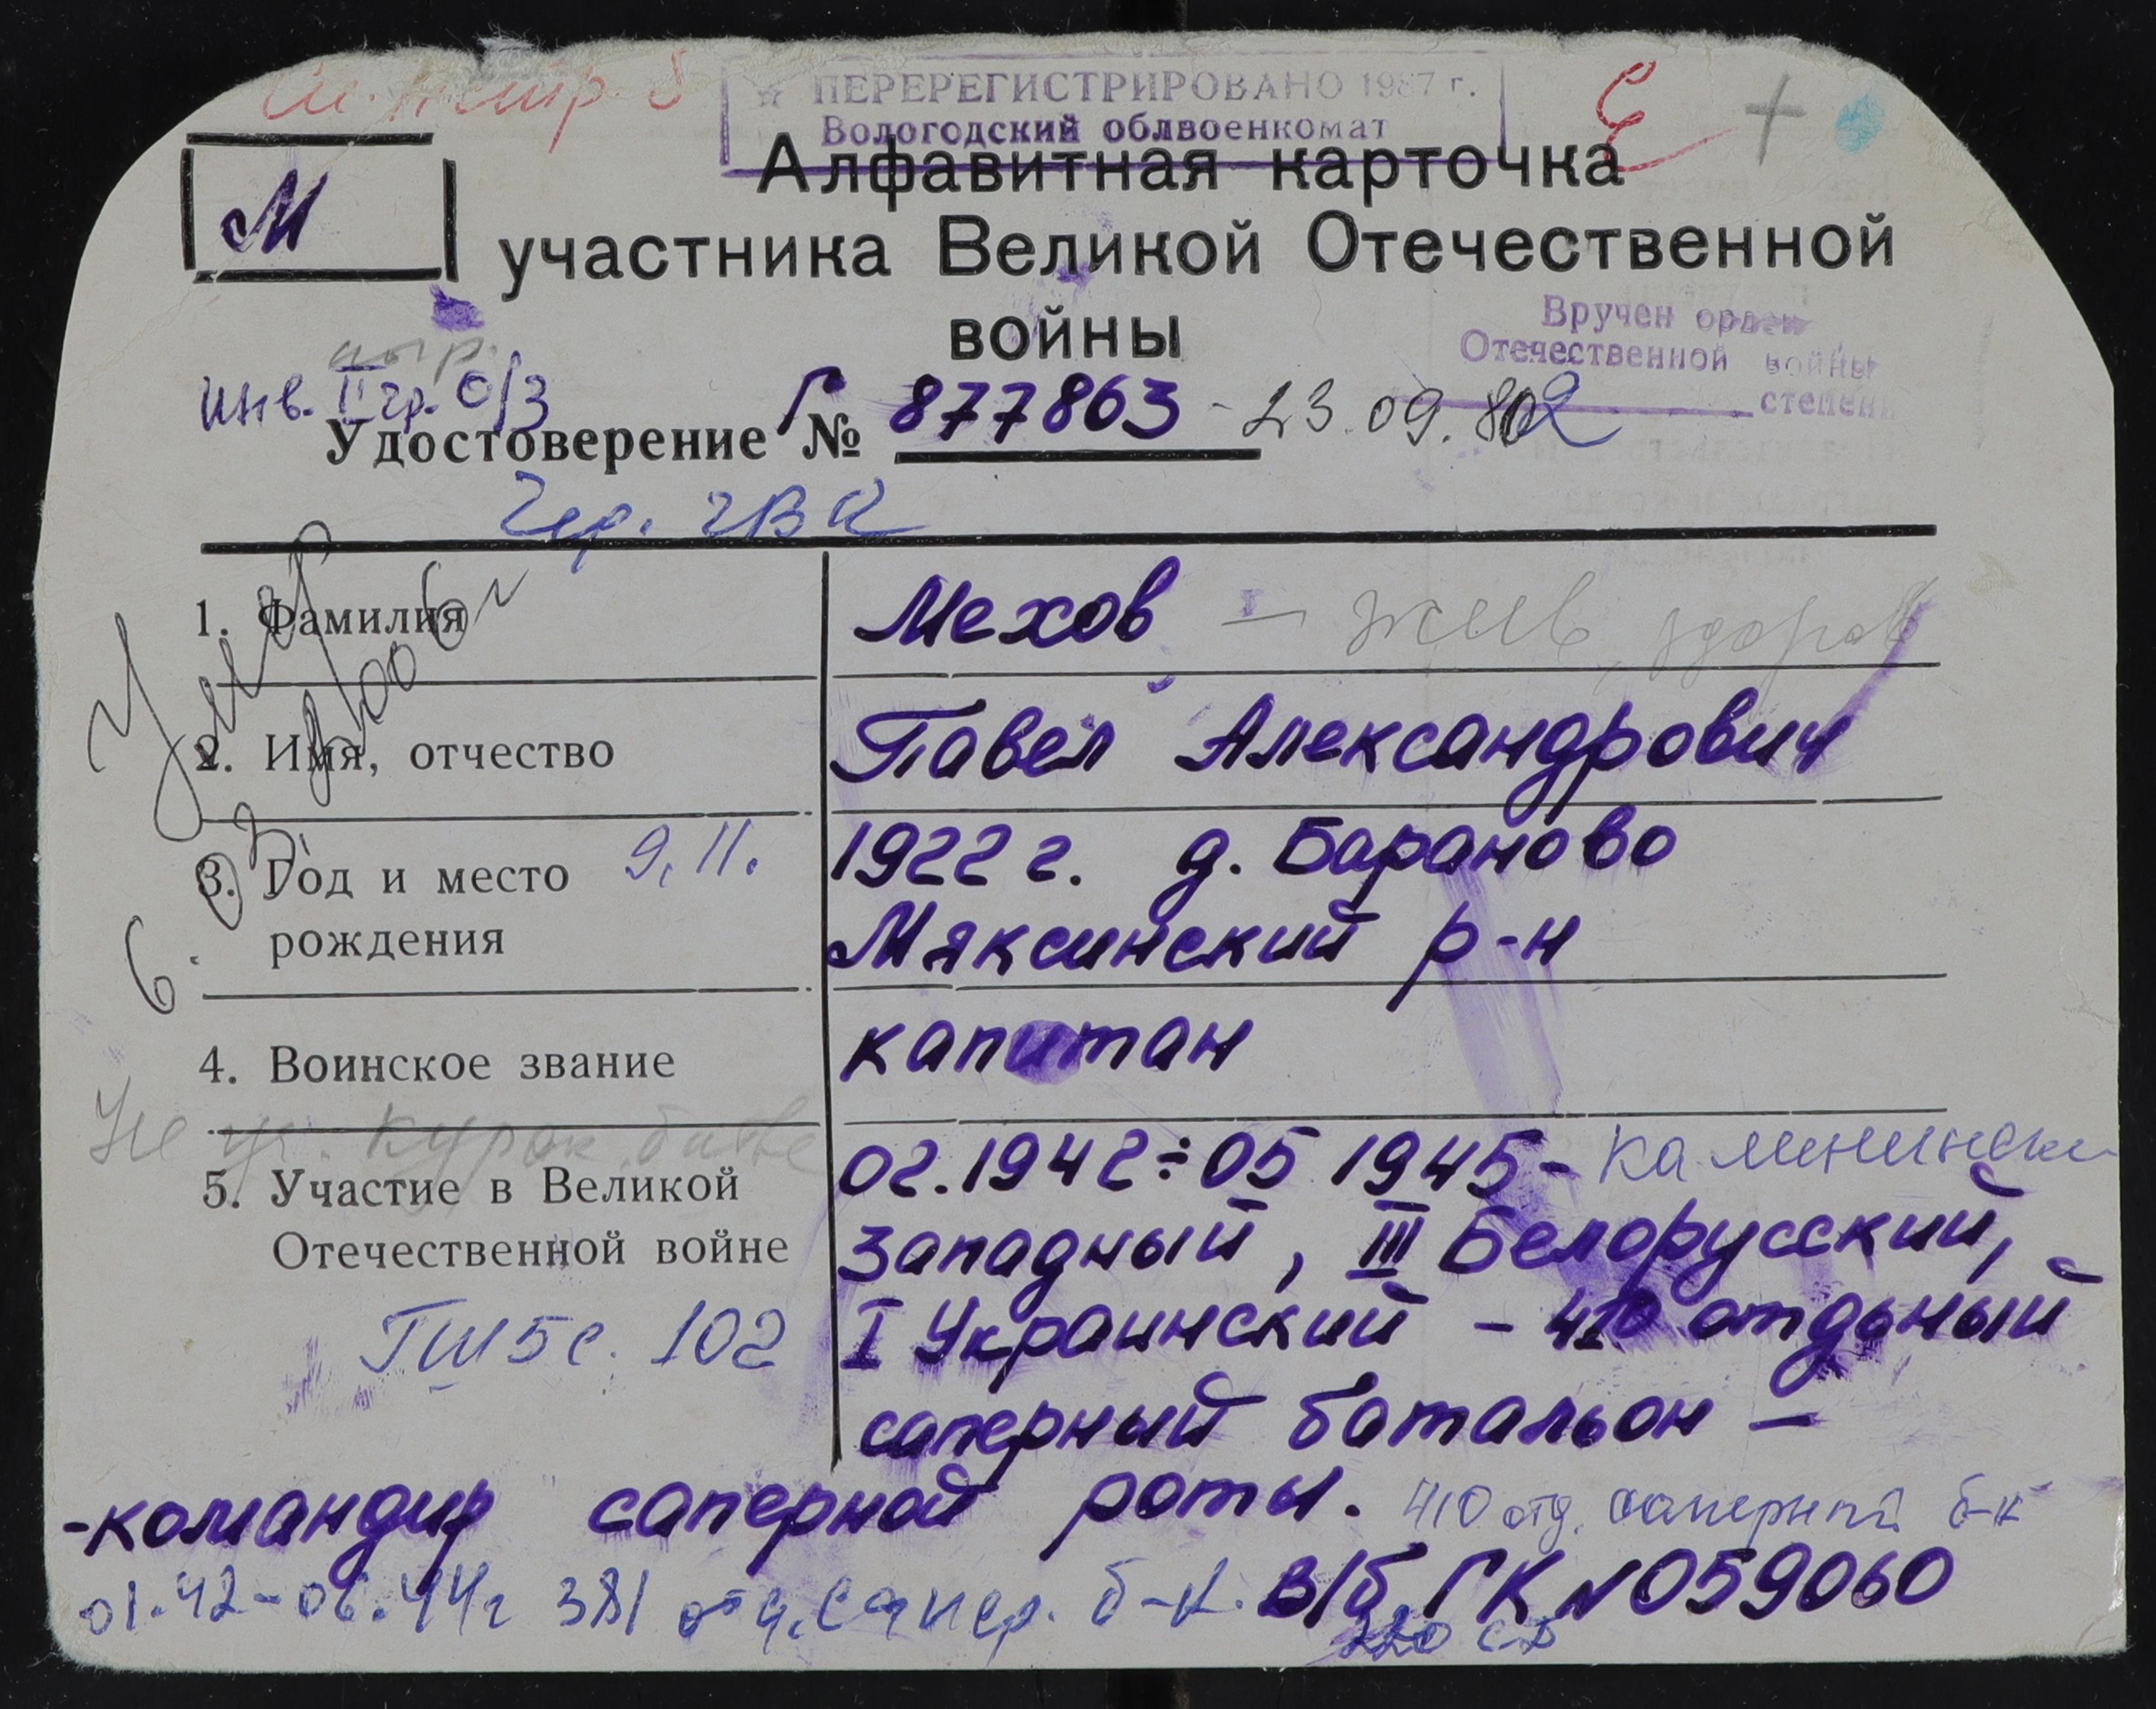 ПЕРЕРЕГИСТРИРОВАНО 1987 г.
Вологодский облвоенкомат
М
Алфавитная карточка
участника Великой Отечественной
войны
Вручен орден
Отечественной войны
степени
Инв. II гр. О/З
Удостоверение Г № 877863 - 23.09.802
Чер. ГВК
1. Фамилия
Мехов — жив, здоров
Умер
2. Имя, отчество
Павел Александрович
3. Год и место
рождения
9.11.
1922 г. д. Бараново
Мяксинский р-н
4. Воинское звание
капитан
Не уч. Курск. битве
5. Участие в Великой
Отечественной войне
02.1942÷05 1945 - Калининский
Западный, III Белорусский,
I Украинский - 410 отдьный
саперный батальон —
ГШ 5 с. 102
-командир саперной роты. 410 отд. саперный б-н
01.42-06.44г 381 отд. сапер. б-н. В/б ГК N059060
220 сд